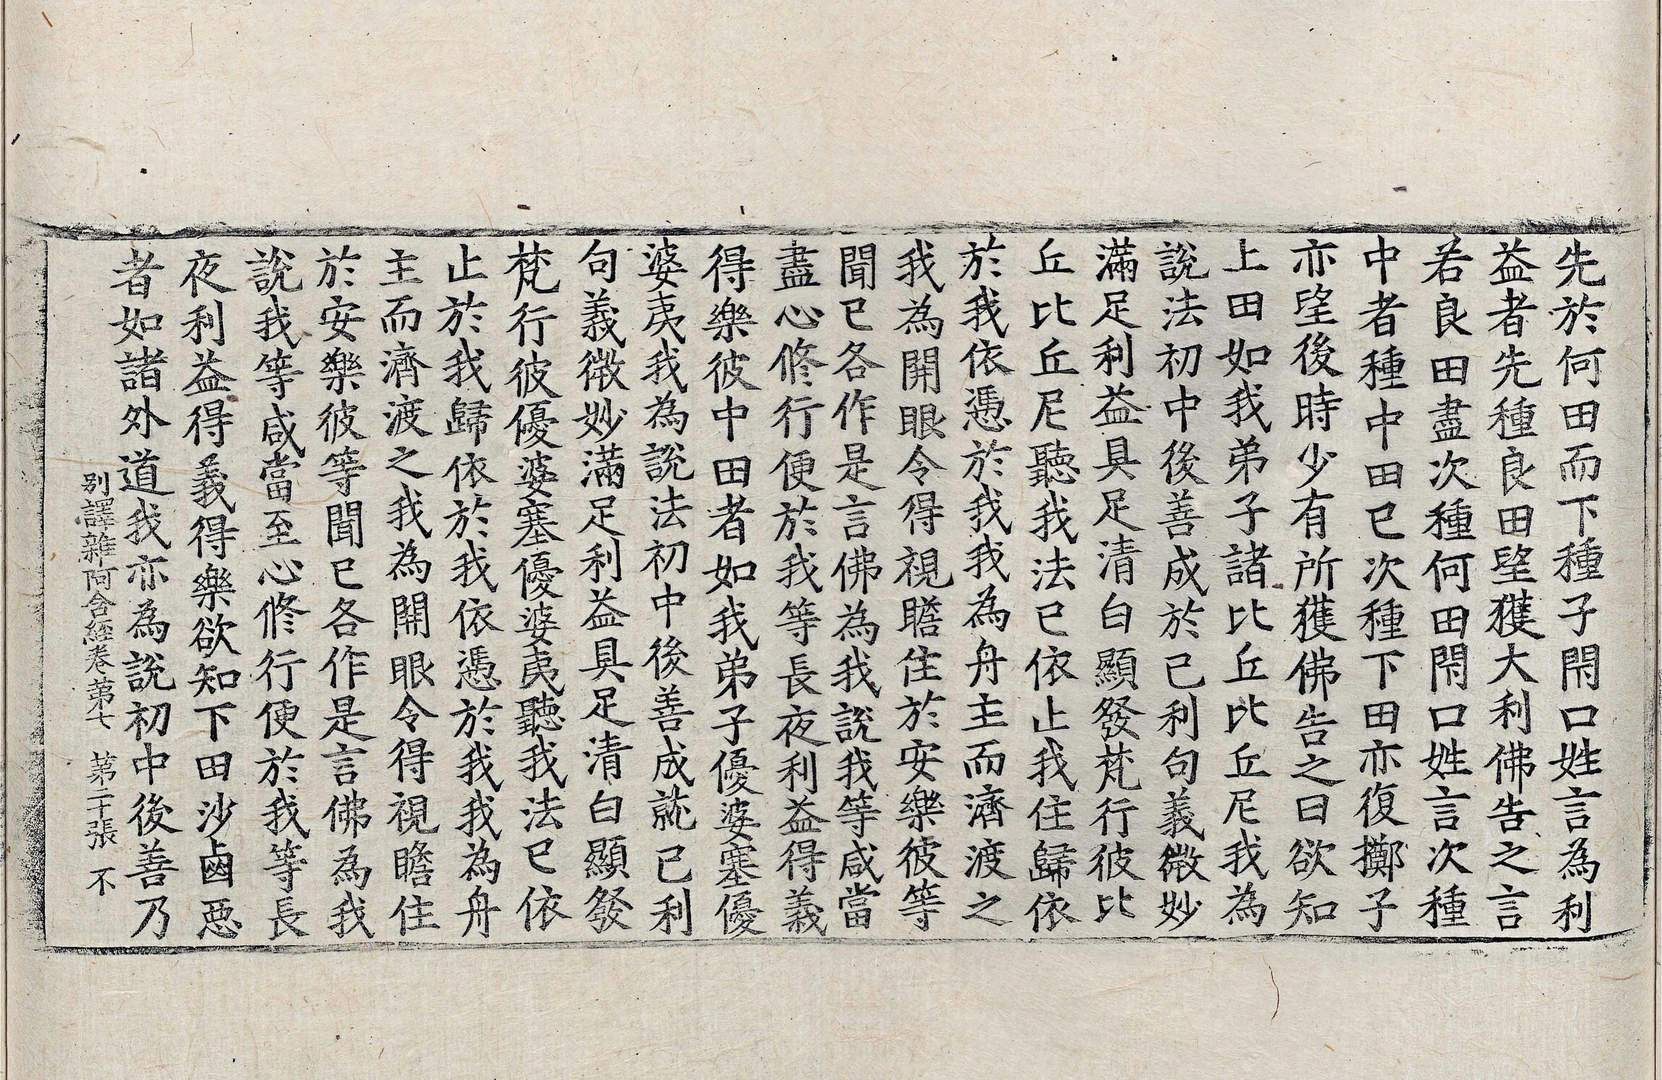 先於何田而下種子閇口姓言為利
益者先種良田望獲大利佛告之言
若良田盡次種何田閇口姓言次種
中者種中田已次種下田亦復擲子
亦望後時少有所獲佛告之曰欲知
上田如我弟子諸比丘比丘尼我為
說法初中後善成於己利句義微妙
滿足利益具足清白顯發梵行彼比
丘比丘尼聽我法已依止我住歸依
於我依憑於我我為舟主而濟渡之
我為開眼令得視瞻住於安樂彼等
聞已各作是言佛為我說我等咸當
盡心修行便於我等長夜利益得義
得樂彼中田者如我弟子優婆塞優
婆夷我為說法初中後善成就己利
句義微妙滿足利益具足清白顯發
梵行彼優婆塞優婆夷聽我法已依
止於我歸依於我依憑於我我為舟
主而濟渡之我為開眼令得視瞻住
於安樂彼等聞已各作是言佛為我
說我等咸當至心修行便於我等長
夜利益得義得樂欲知下田沙鹵惡
者如諸外道我亦為說初中後善乃
別譯雜阿含經卷第七 第二十張 不